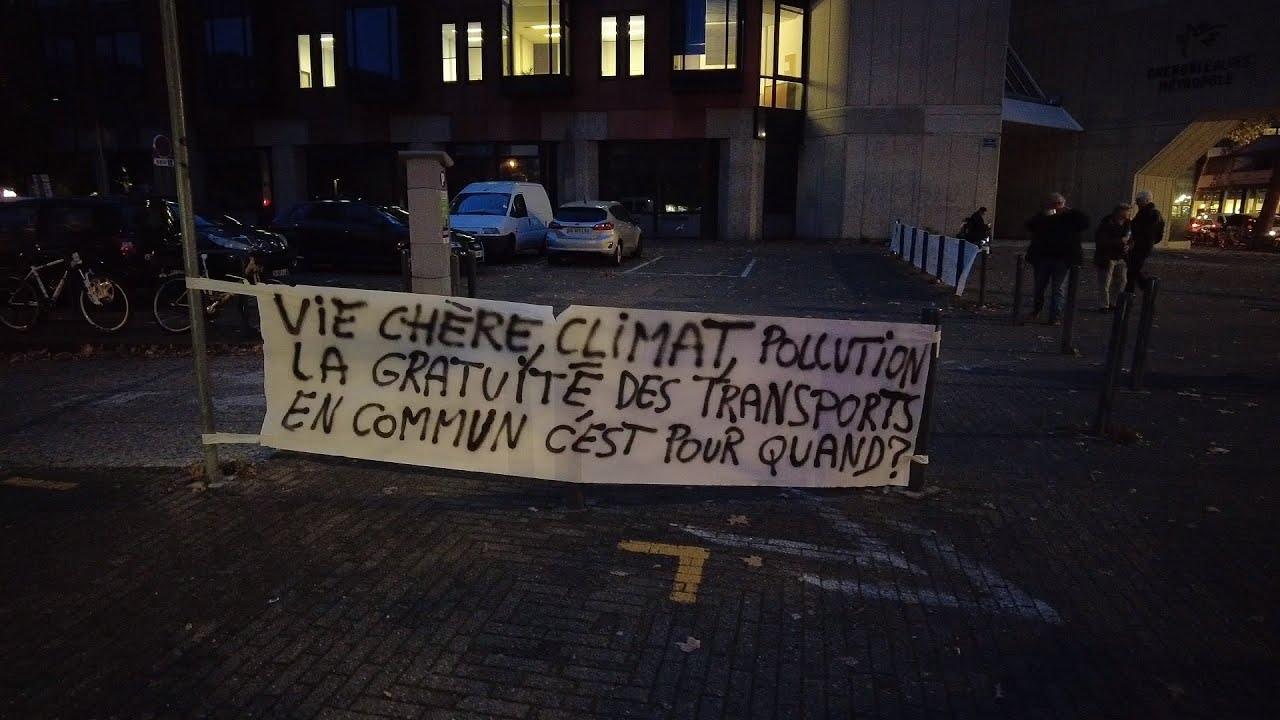 GRENOBLE ALPES
MÉTROPOLE
ViE CHÈRE, CLiMAT, POLLUTiON
LA GRATUiTÉ DES TRANSPORTS
EN COMMUN C'EST POUR QUAND?